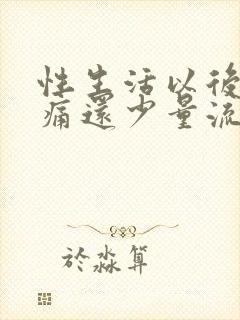 性生活以後
痛還少量流
於淼算